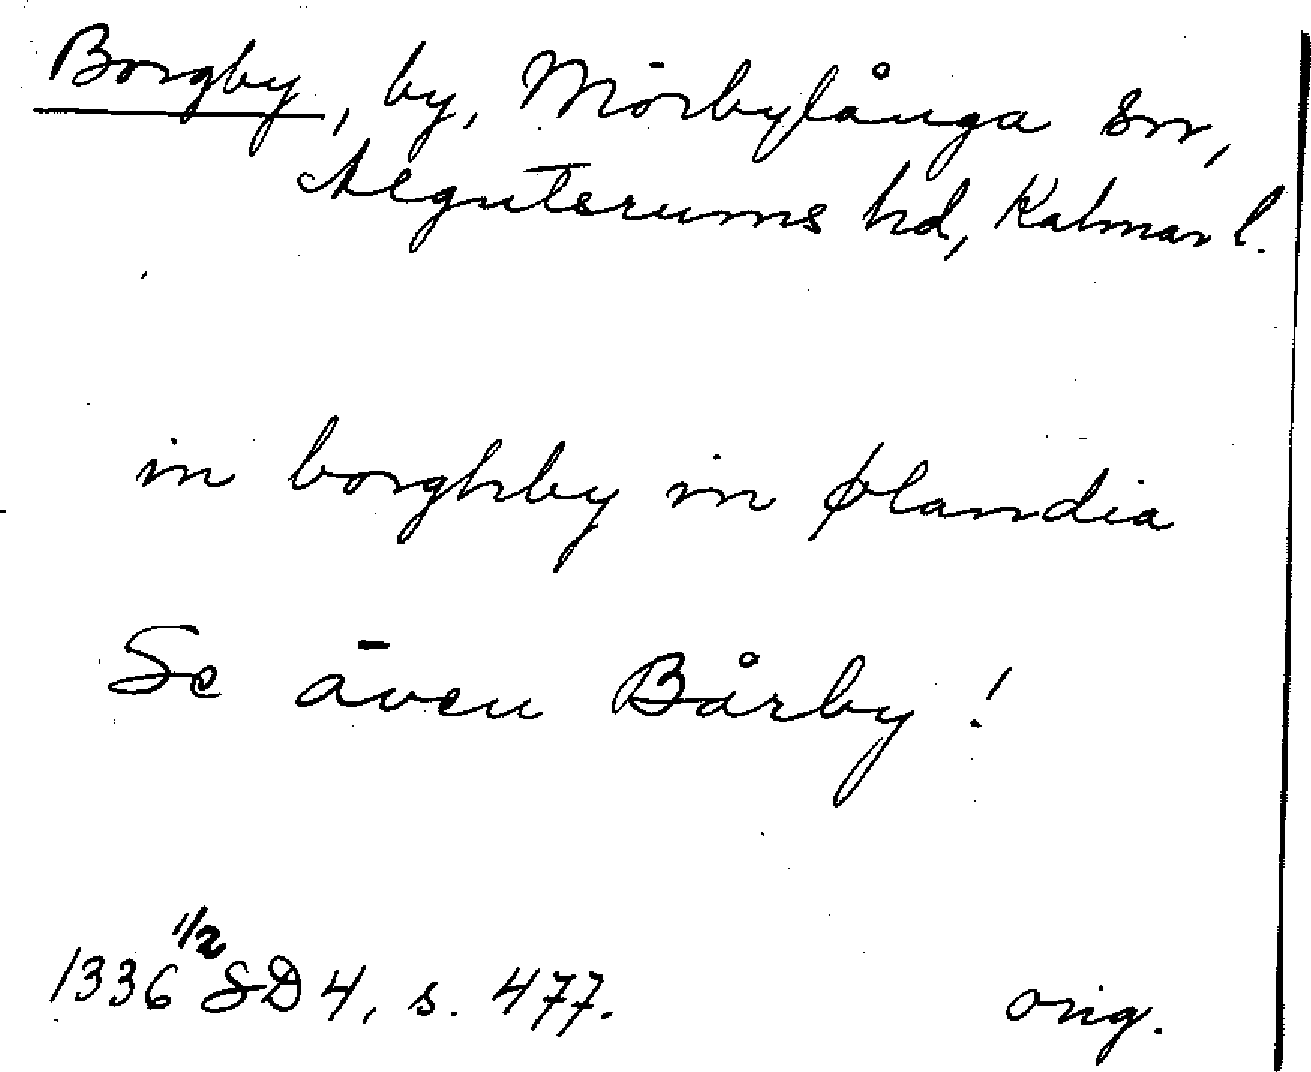 Borgby, by, Mörbylånga sn,
Algutsrums hd, Kalmar l.
in borghby in ølandia
Se även Bårby!
1336 1/2 SD 4, s. 477. orig.